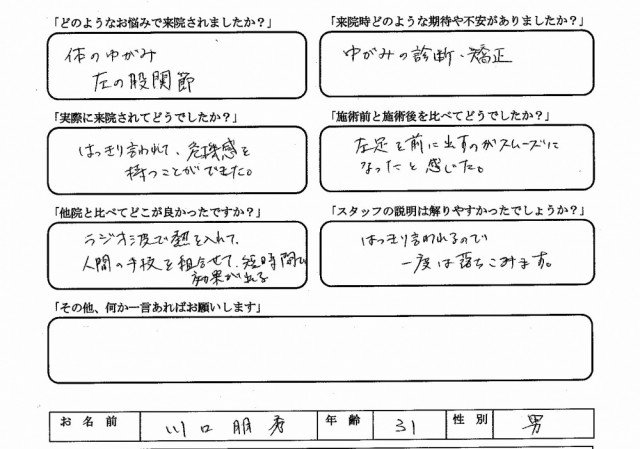 「どのようなお悩みで来院されましたか？」
体のゆがみ
左の股関節
「来院時どのような期待や不安がありましたか？」
ゆがみの診断・矯正
「実際に来院されてどうでしたか？」
はっきり言われて、危機感を
持つことができた。
「施術前と施術後を比べてどうでしたか？」
左足を前に出すのがスムーズに
なったと感じた。
「他院と比べてどこが良かったですか？」
ラジオ波で熱を入れて、
人間の手技を組合せて、短時間で
効果が出る
「スタッフの説明は解りやすかったでしょうか？」
はっきり言われるので
一度は落ちこみます。
「その他、何か一言あればお願いします」
お名前 川口朋秀 年齢 31 性別 男